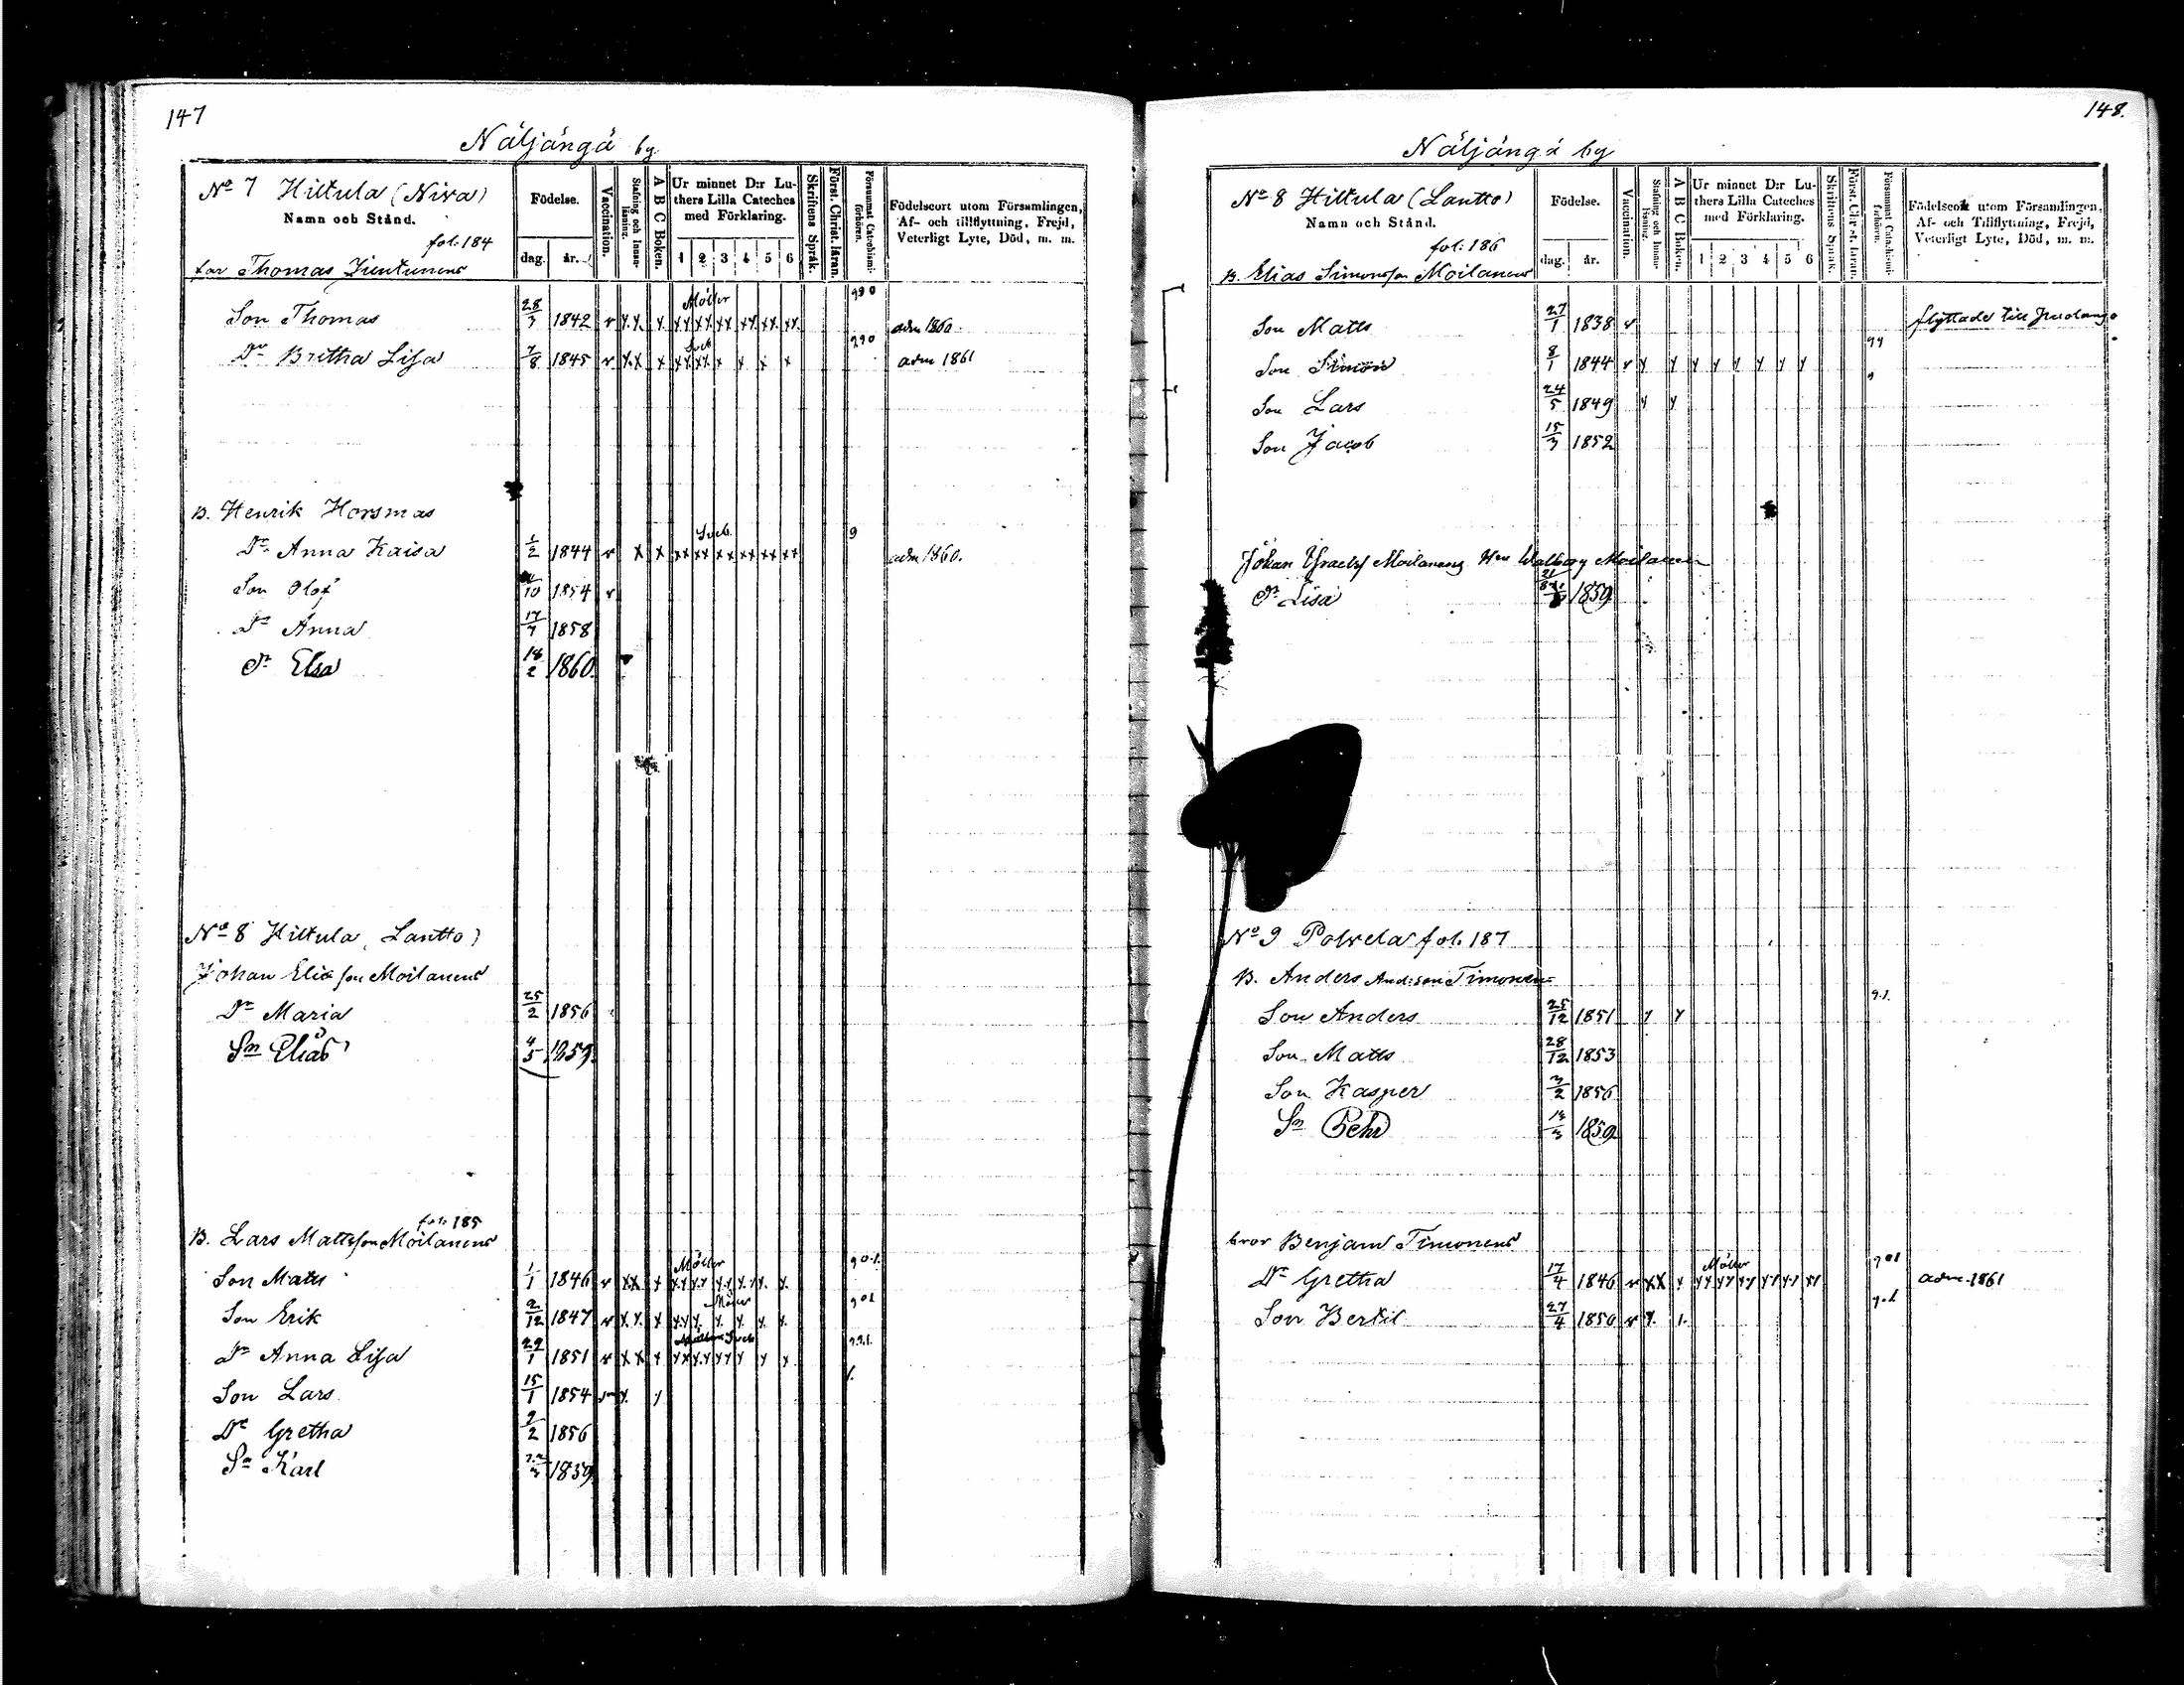 147
Näljängä by
No 7 Hiltula (Niva)
Namn och Stånd.
fol. 184
Födelse.
dag. år.
Vaccination.
Stafning och Innanläsning.
A B C Boken.
Ur minnet D:r Luthers Lilla Cateches med Förklaring.
1 2 3 4 5 6
Skriftens Språk.
Först. Christ. läran.
Försummat Catechismiförhören.
Födelseort utom Församlingen, Af- och tillflyttning, Frejd, Veterligt Lyte, Död, m. m.
Thomas
Son Thomas 28/3 1842 v x x x Möller xx xx xx xx xx xx 990 adm 1860.
Dr Britha Lisa 7/8 1845 v x x x xx xx x x x x 290 adm 1861
B. Henrik Horsmas
Dr Anna Kaisa 1/2 1844 v x x xx xx xx xx xx xx 9 adm 1860.
Son Olof /10 1854 v
Dr Anna 17/7 1858
Dr Elsa 18/2 1860.
No 8 Hiltula (Lantto)
Johan Eliasson Moilanens
Dr Maria 25/2 1856
Sn Elias 4/5 1859.
fol. 185
B. Lars Mattsson Moilanens
Son Matts 1/1 1846 v x x x Möller 901.
Son Erik 2/12 1847 v x x x Möller 901
Dr Anna Lisa 29/1 1851 v x x x 991.
Son Lars 15/1 1854 v x. x 1.
Dr Gretha 9/2 1856
Sn Karl 1859.
148.
Näljängä by
No 8 Hiltula (Lantto)
Namn och Stånd.
fol. 186
Födelse.
dag. år.
Vaccination.
Stafning och Innanläsning.
A B C Boken.
Ur minnet D:r Luthers Lilla Cateches med Förklaring.
1 2 3 4 5 6
Skriftens Språk.
Först. Christ. läran.
Försummat Catechismiförhören.
Födelseort utom Församlingen, Af- och Tillflyttning, Frejd, Veterligt Lyte, Död, m. m.
B. Elias Simonsson Moilanens
Son Matts 27/1 1838 v flyttade till
Son Simon 8/1 1844 v x x x x x x x x 99
Son Lars 24/5 1849 x x 9
Son Jacob 15/3 1852
Johan Moilanens Walborg Moilanen
Dr Lisa 1859
No 9 Polvela fol. 187
B. Anders And:son Timonen
Son Anders 25/12 1851 x x 9.1.
Son Matts 28/12 1853
Son Kasper 3/2 1856
Sn Pehr 14/3 1859
bror Benjam Timonens
Dr Gretha 17/4 1846 v xx x Möller xx xx xx xx xx xx 901 adm. 1861
Son Bertil 27/4 1850 v x. 1. 901